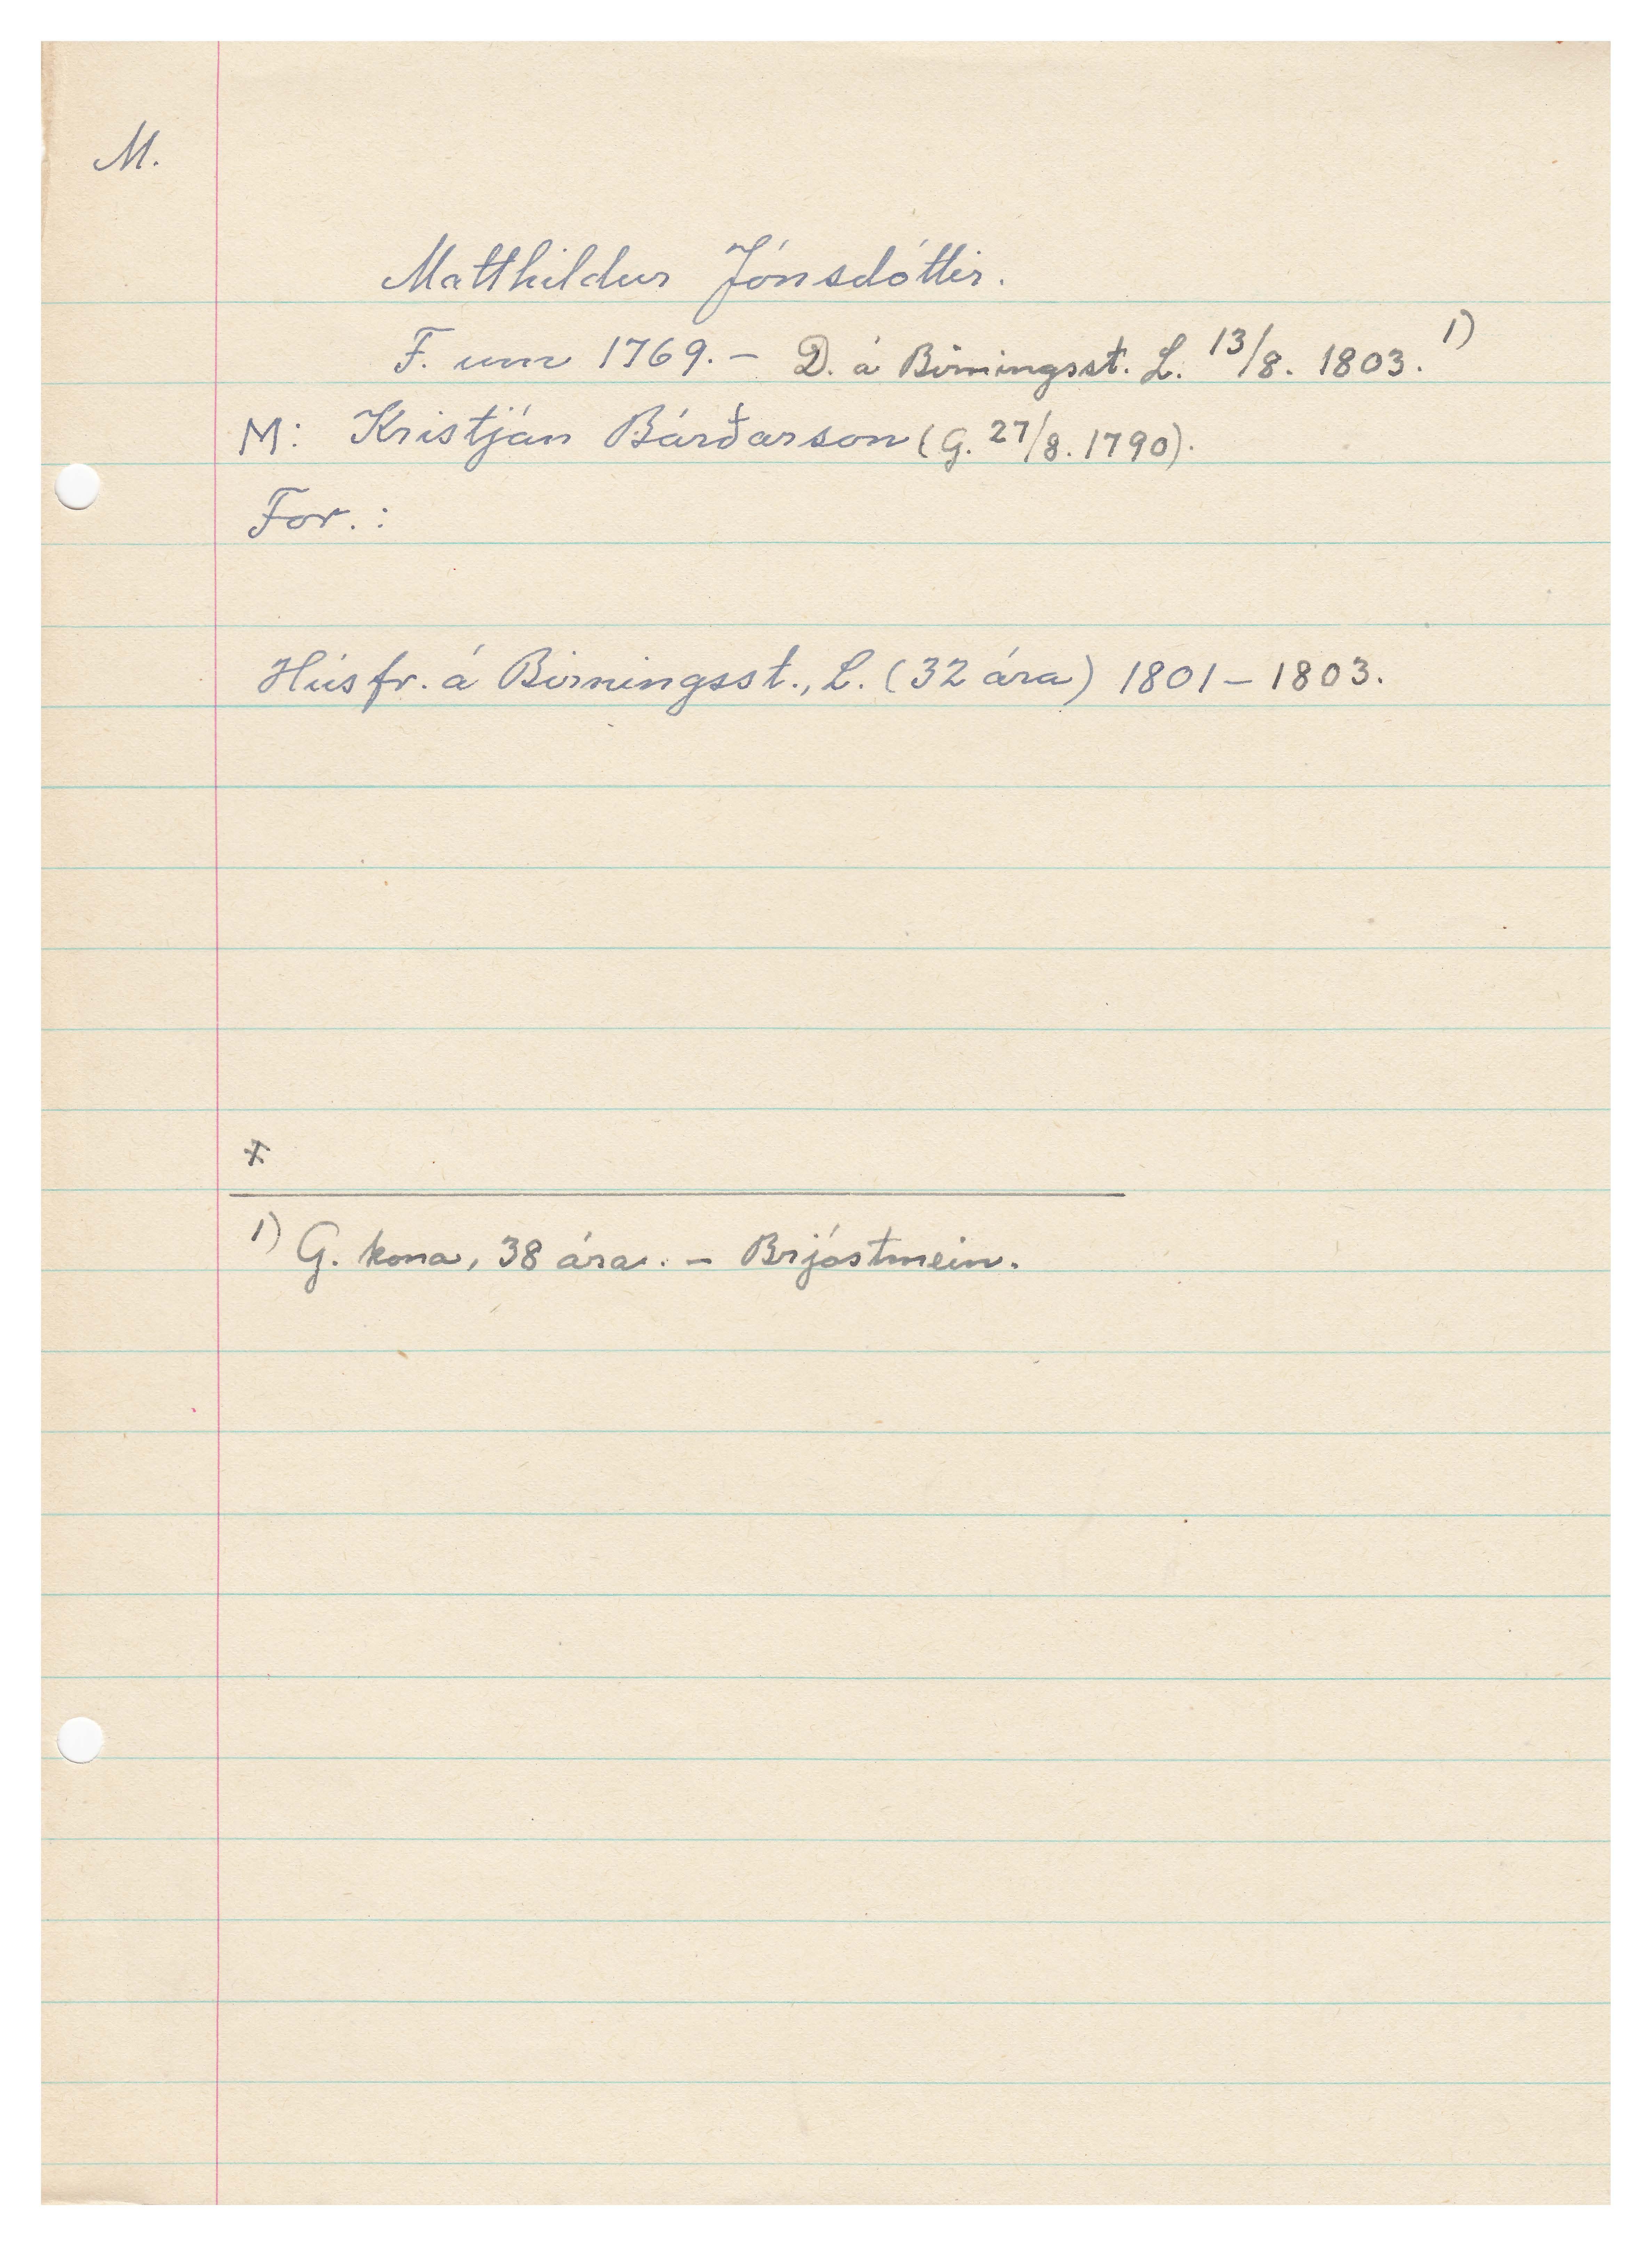 M.
Matthildur Jónsdóttir.
F. um 1769. – D. á Birningsst. L. 13/8. 1803. 1)
M: Kristján Bárðarson (G. 27/8. 1790).
For.:
Húsfr. á Birningsst., L. (32 ára) 1801 – 1803.
1) G. kona, 38 ára. – Brjóstmein.